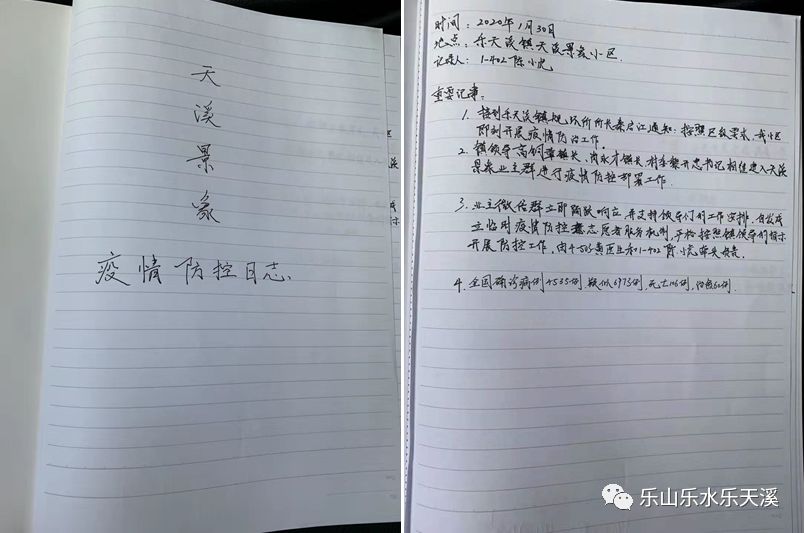 天
溪
景
象
疫情防控日志
时间：2020年1月30日
地点：乐天溪镇天溪景象小区
记录人：1-402陈小
重要记事：
1. 接到乐天溪镇规所所长秦启江通知：按照区级要求，我小区
即刻开展疫情防治工作。
2. 镇领导高镇长，向永才镇长，村书记相继进入天溪
景象业主群进行疫情防控部署工作。
3. 业主微信群立即踊跃响应，并支持领导们的工作安排，自发成
立临时疫情防控志愿者服务，严格按照镇领导的指示
开展防控工作，由4-503黄医生和1-402陈小
4. 全国确诊病例4535例，疑似6973例，死亡106例，治愈60例.
乐山乐水乐天溪